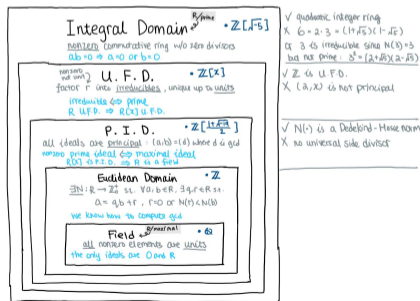 Integral Domain R/prime • ℤ[√-5]
nonzero commutative ring w/o zero divisors
ab=0 ⇒ a=0 or b=0
nonzero not unit U.F.D. • ℤ[x]
factor r into irreducibles, unique up to units
irreducible ⇔ prime
R U.F.D. ⇒ R[x] U.F.D.
P.I.D. • ℤ[(1+√-19)/2]
all ideals are principal : (a,b)=(d) where d is gcd
nonzero prime ideal ⇔ maximal ideal
R[x] P.I.D. ⇒ R is a field
Euclidean Domain • ℤ
∃N: R→ℤ⁺ s.t. ∀a,b∈R, ∃q,r∈R s.t.
a = qb + r, r=0 or N(r)<N(b)
We know how to compute gcd
Field R/maximal • ℚ
all nonzero elements are units
the only ideals are 0 and R
✓ quadratic integer ring
× 6 = 2·3 = (1+√-5)(1-√-5)
or 3 is irreducible since N(3)=9
but not prime: 3² = (2+√-5)(2-√-5)
✓ ℤ is U.F.D.
× (2,x) is not principal
✓ N(·) is a Dedekind-Hasse norm
× no universal side divisor